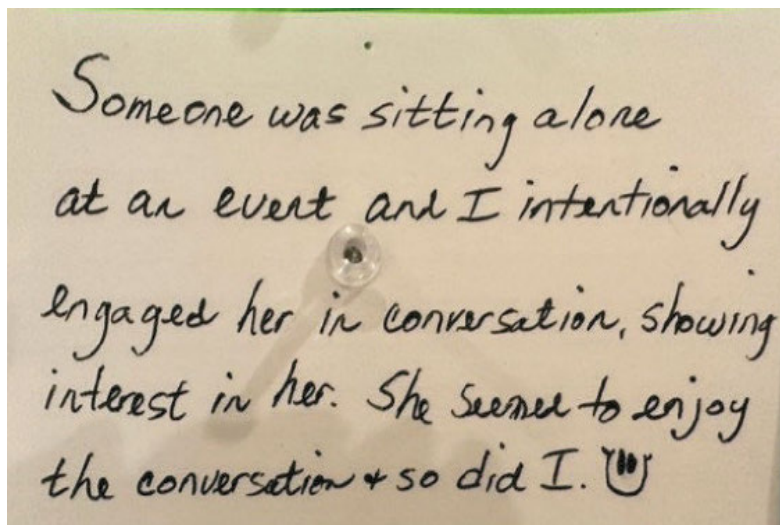 Someone was sitting alone
at an event and I intentionally
engaged her in conversation, showing
interest in her. She seemed to enjoy
the conversation + so did I.